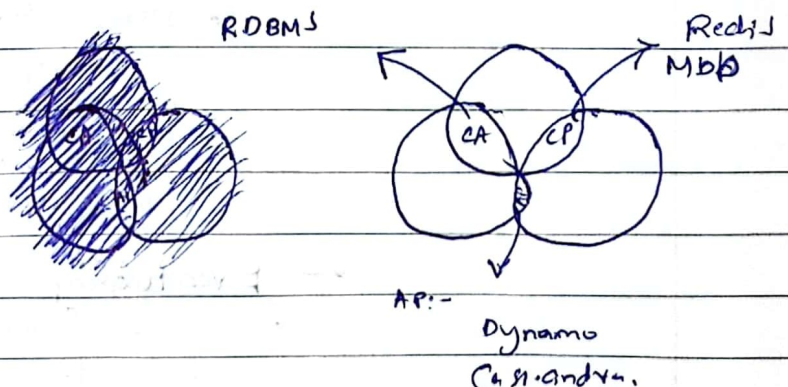 RDBMS
Redis
MDb
CA
CP
CA
CP
AP:-
Dynamo
Cassandra.